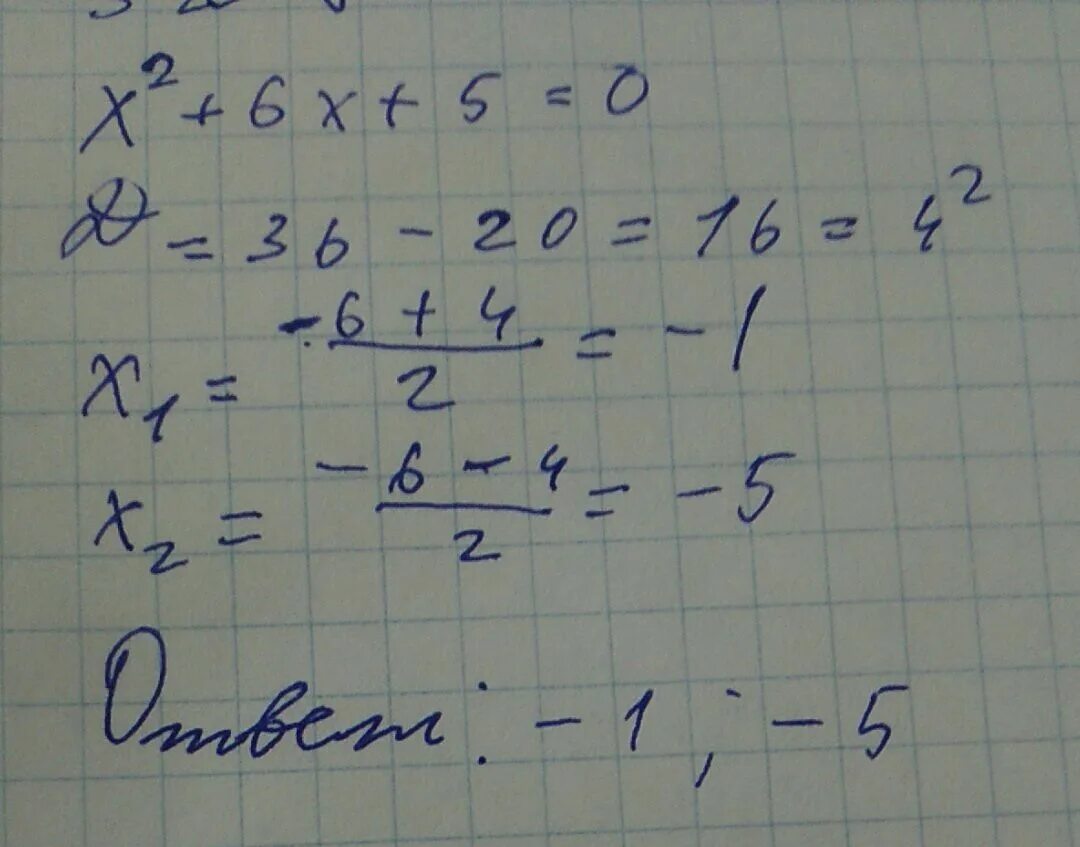 x² + 6x + 5 = 0
D = 36 - 20 = 16 = 4²
x₁ = (-6 + 4)/2 = -1
x₂ = (-6 - 4)/2 = -5
Ответ: -1; -5